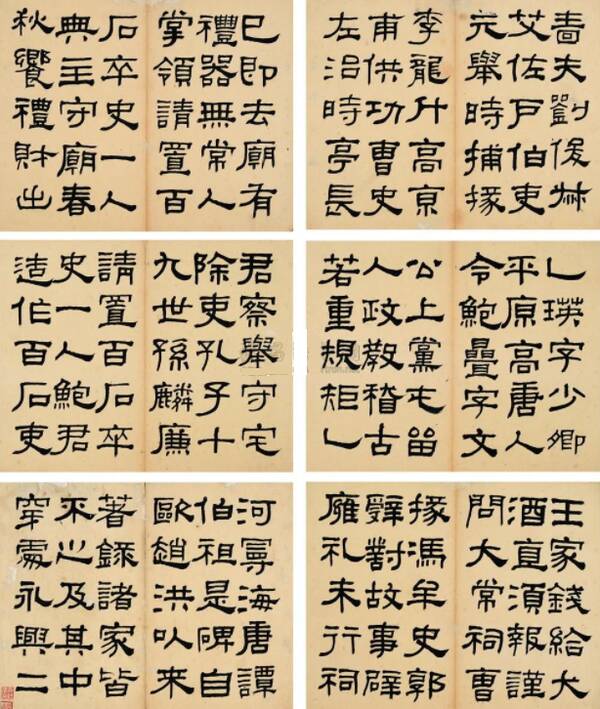 嗇夫劉俊叔
艾佐戶伯吏
元舉時捕掾
李龍升高亰
甫供功曹史
左治時亭長
巳即去廟有
禮器無常人
掌領請置百
石卒史一人
典主守廟春
秋饗禮財出
乙瑛字少卿
平原高唐人
令鮑疊字文
公上黨屯留
人政教稽古
若重規矩乙
君察舉守宅
除吏孔子十
九世孫麟廉
請置百石卒
史一人鮑君
造作百石吏
王家錢給犬
酒直須報謹
問大常祠曹
掾馮牟史郭
辭對故事辟
廱礼未行祠
河尋海唐譚
伯祖是碑自
歐趙洪以來
著錄諸家皆
未之及其中
穿處永興二